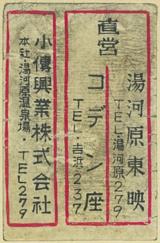 直営
湯河原東映
TEL・湯河原279
コデン座
TEL・吉浜237
小傳興業株式会社
本社・湯河原温泉場
TEL279